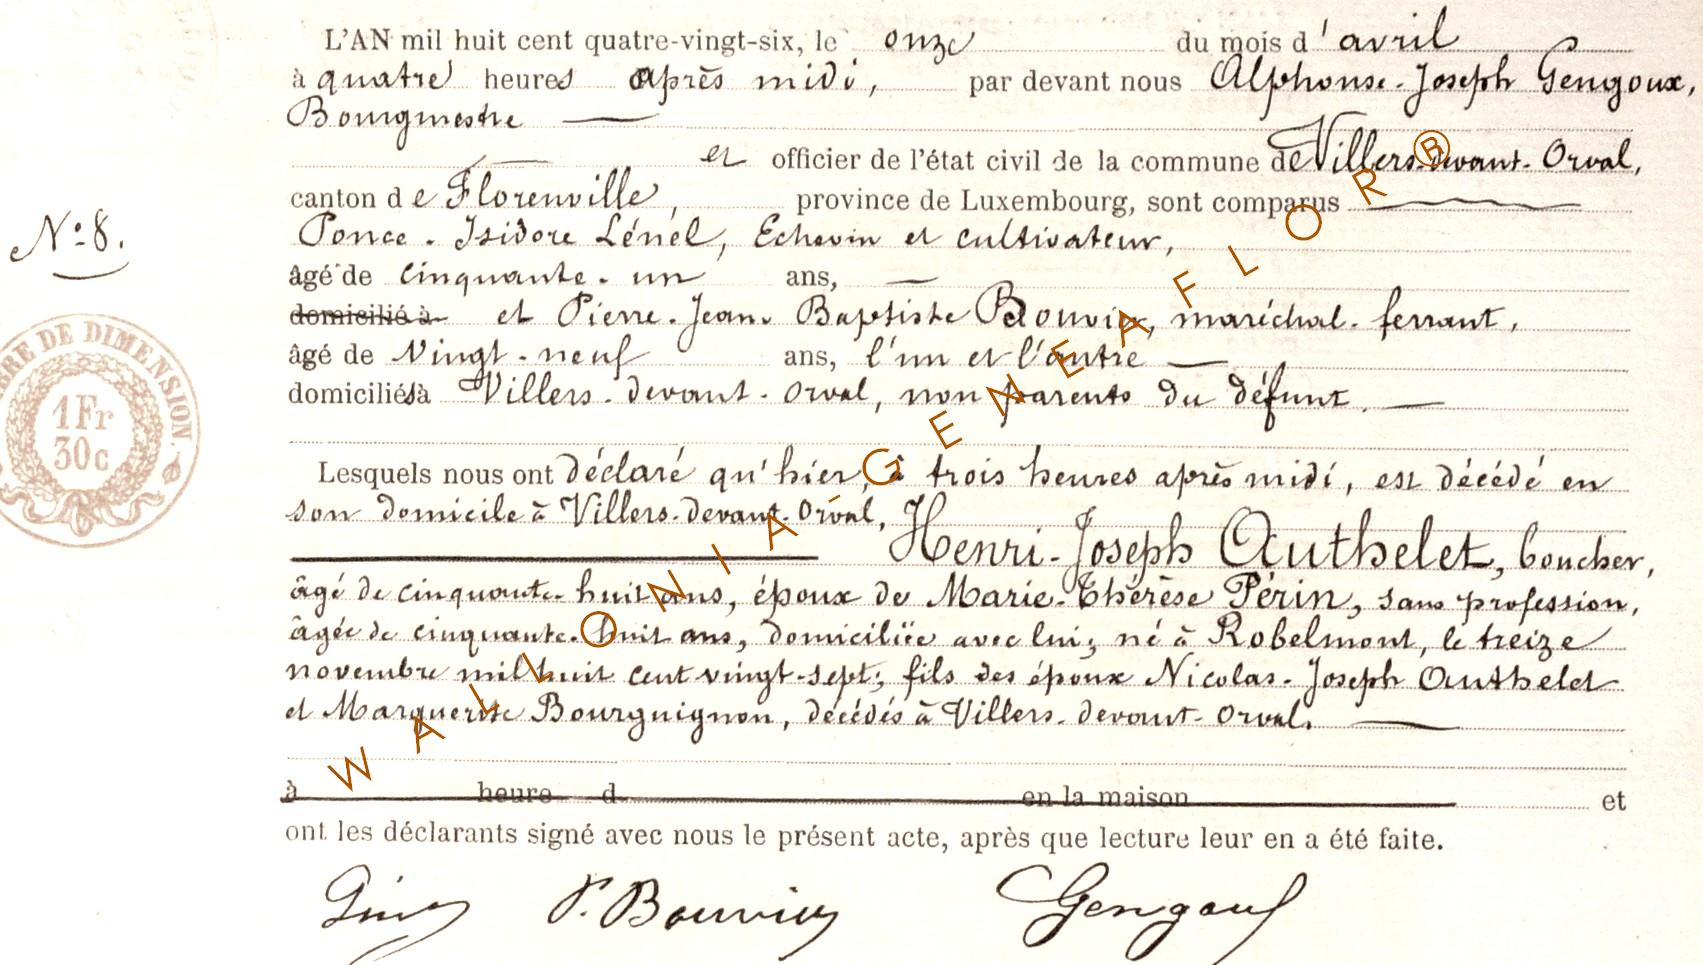 L'AN mil huit cent quatre-vingt-six, le onze du mois d'avril
à quatre heures après midi, par devant nous Alphonse-Joseph Gengoux,
Bourgmestre
et officier de l'état civil de la commune de Villers-devant-Orval,
canton de Florenville, province de Luxembourg, sont comparus
Ponce-Isidore Lénel, Echevin et cultivateur,
âgé de cinquante-un ans,
domicilié à et Pierre-Jean-Baptiste Bouvier, maréchal-ferrant,
âgé de vingt-neuf ans, l'un et l'autre
domiciliés à Villers-devant-Orval, non parents du défunt.
Lesquels nous ont déclaré qu'hier, à trois heures après midi, est décédé en
son domicile à Villers-devant-Orval, Henri-Joseph Authelet, boucher,
âgé de cinquante-huit ans, époux de Marie-Thérèse Périn, sans profession,
âgée de cinquante-huit ans, domiciliée avec lui; né à Robelmont, le treize
novembre mil huit cent vingt-sept; fils des époux Nicolas-Joseph Authelet
et Marguerite Bourguignon, décédés à Villers-devant-Orval.
à heure d en la maison et
ont les déclarants signé avec nous le présent acte, après que lecture leur en a été faite.
P. Bouvier Gengoux
N° 8.
BRE DE DIMENSION.
1Fr
30c
WALLONIA GENEAFLOR®